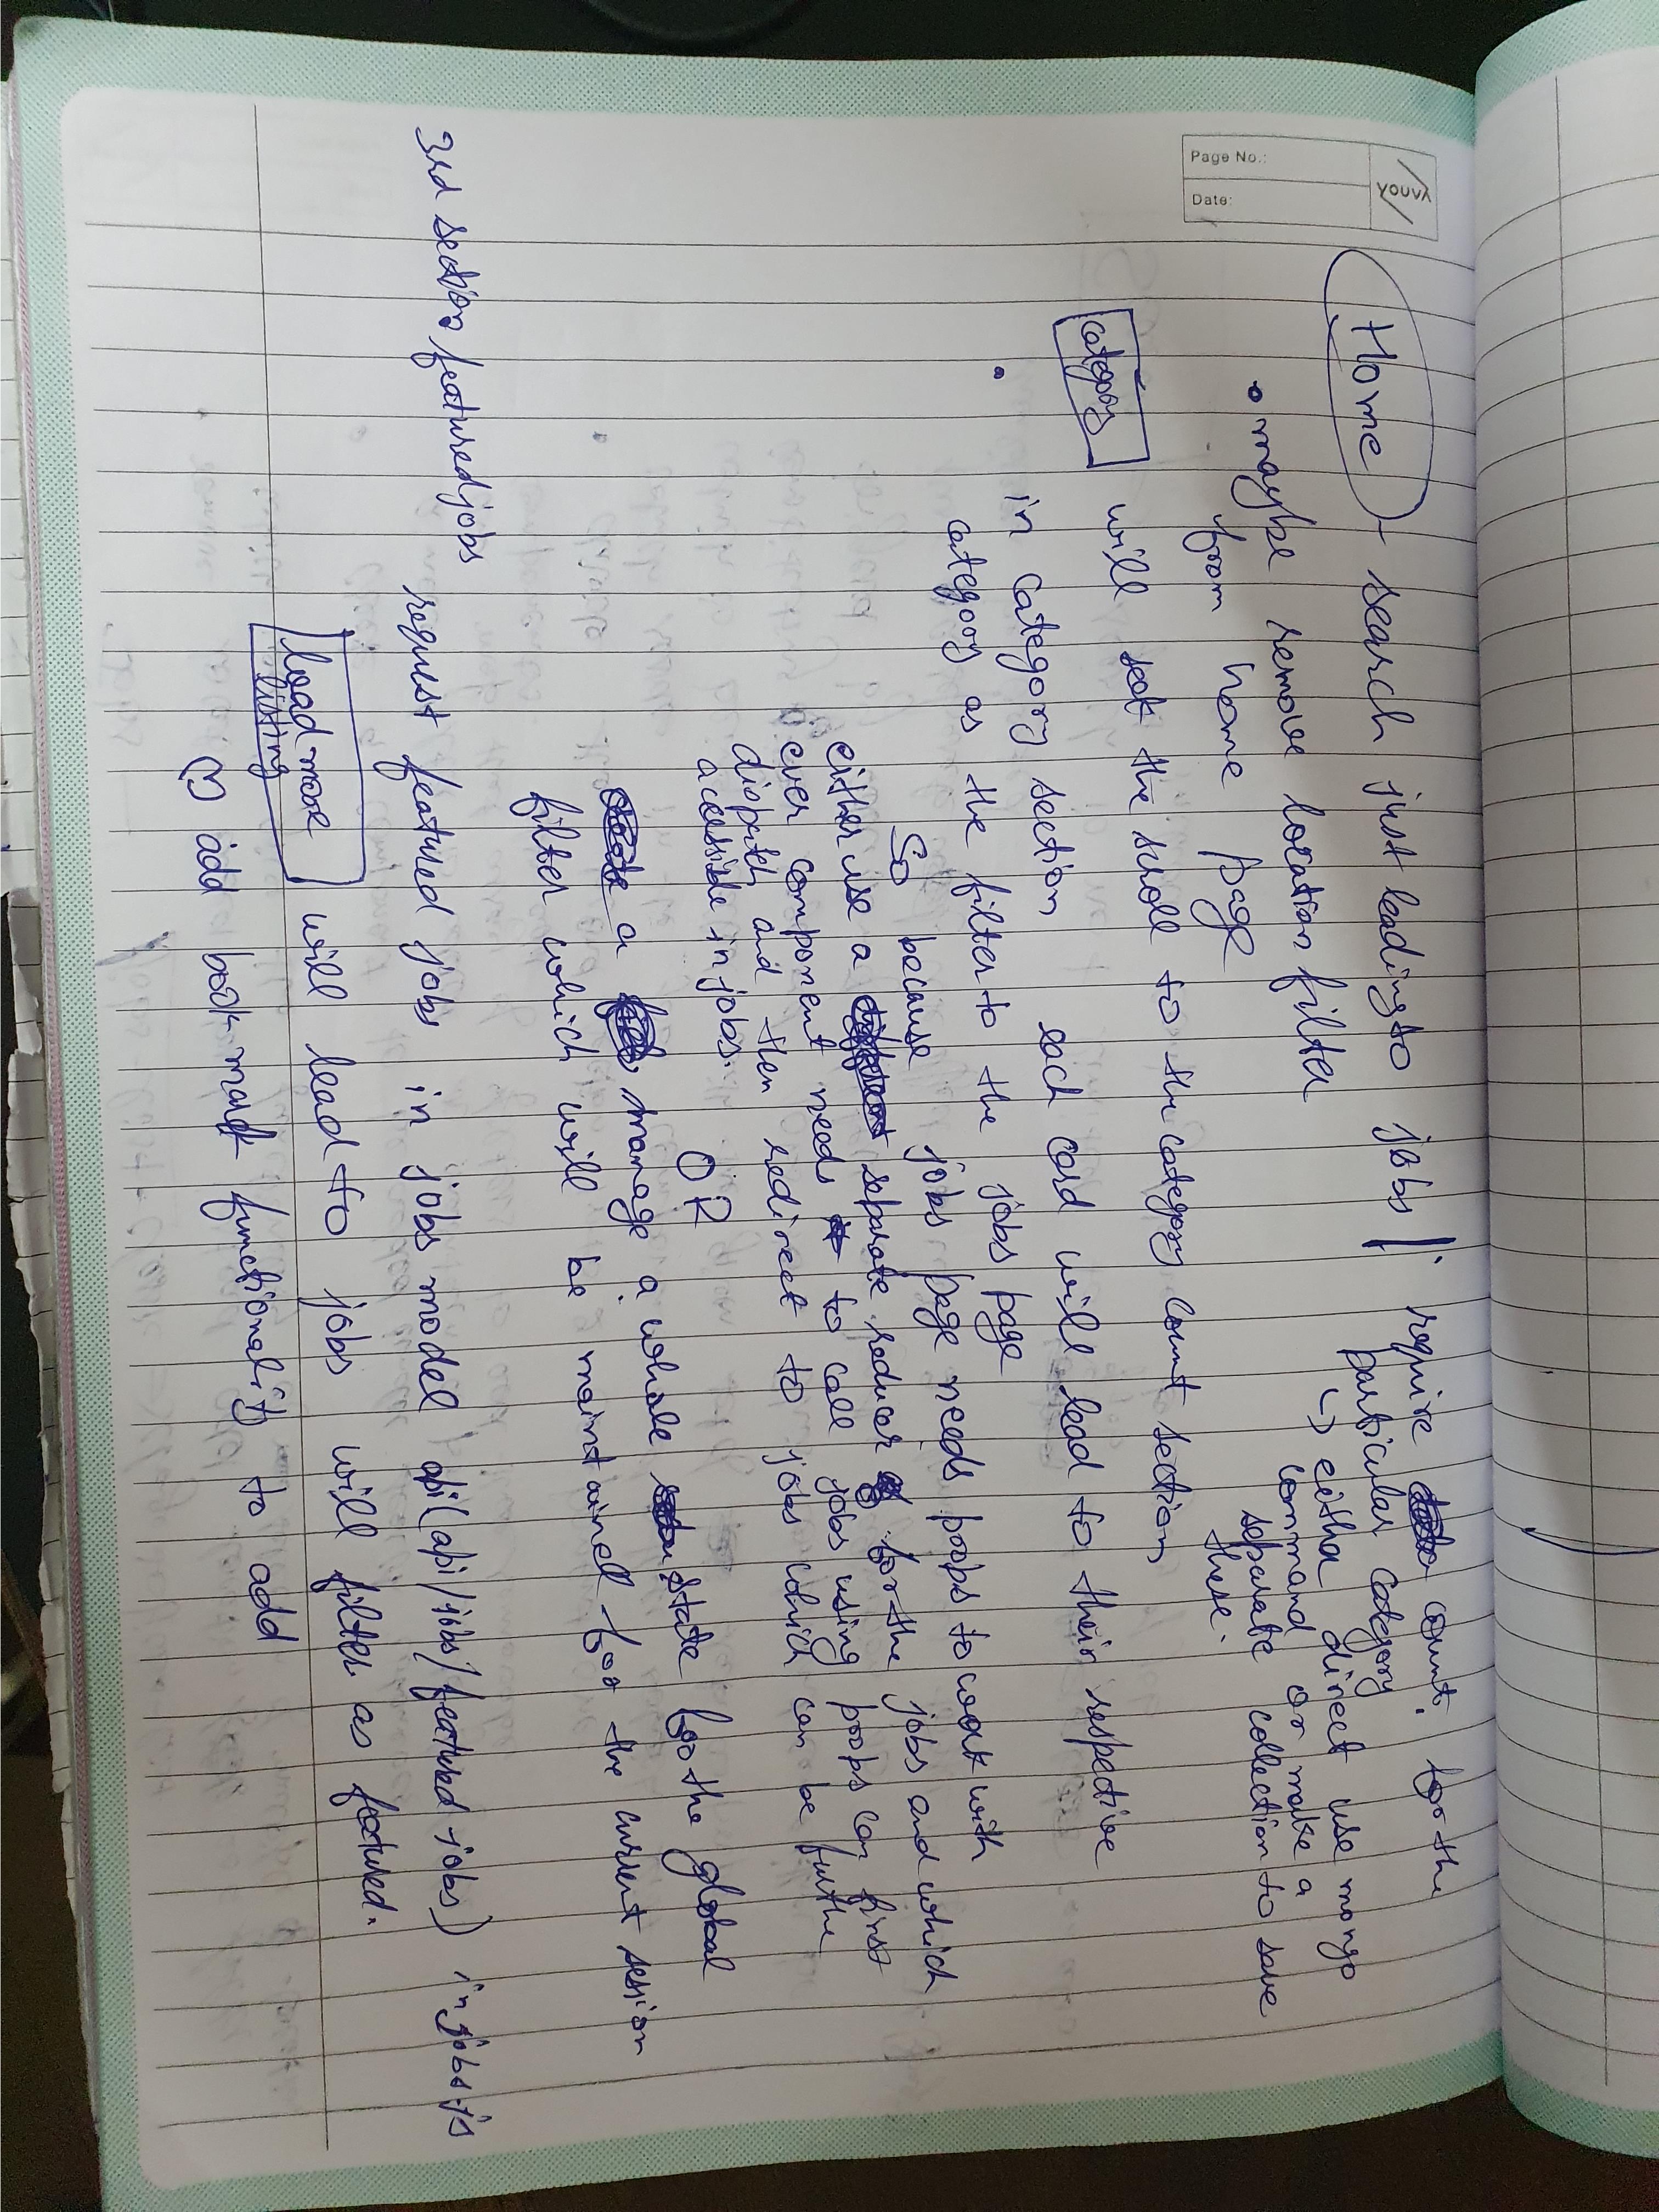 YOUVA
Page No.:
Date:
Home - search just leading to jobs
require count. for the
particular category
↳ either direct use mongo
command or make a
separate collection to save
these.
• maybe remove location filter
from home page
category will the scroll to the category count section
• in category section each card will lead to their respective
category as the filter to the jobs page
So because jobs page needs props to work with
either use a separate reducer for the jobs and which
ever component needs to call jobs using props can first
dispatch and then redirect to jobs which can be furthe
accessible in jobs.
OR
a manage a whole state for the global
filter which will be maintained for the current session
3rd section featured jobs
request featured jobs in jobs model api(api/jobs/featured-jobs) in jobs.js
load more
listing
will lead to jobs will filter as featured.
♡ add book mark functionality to add